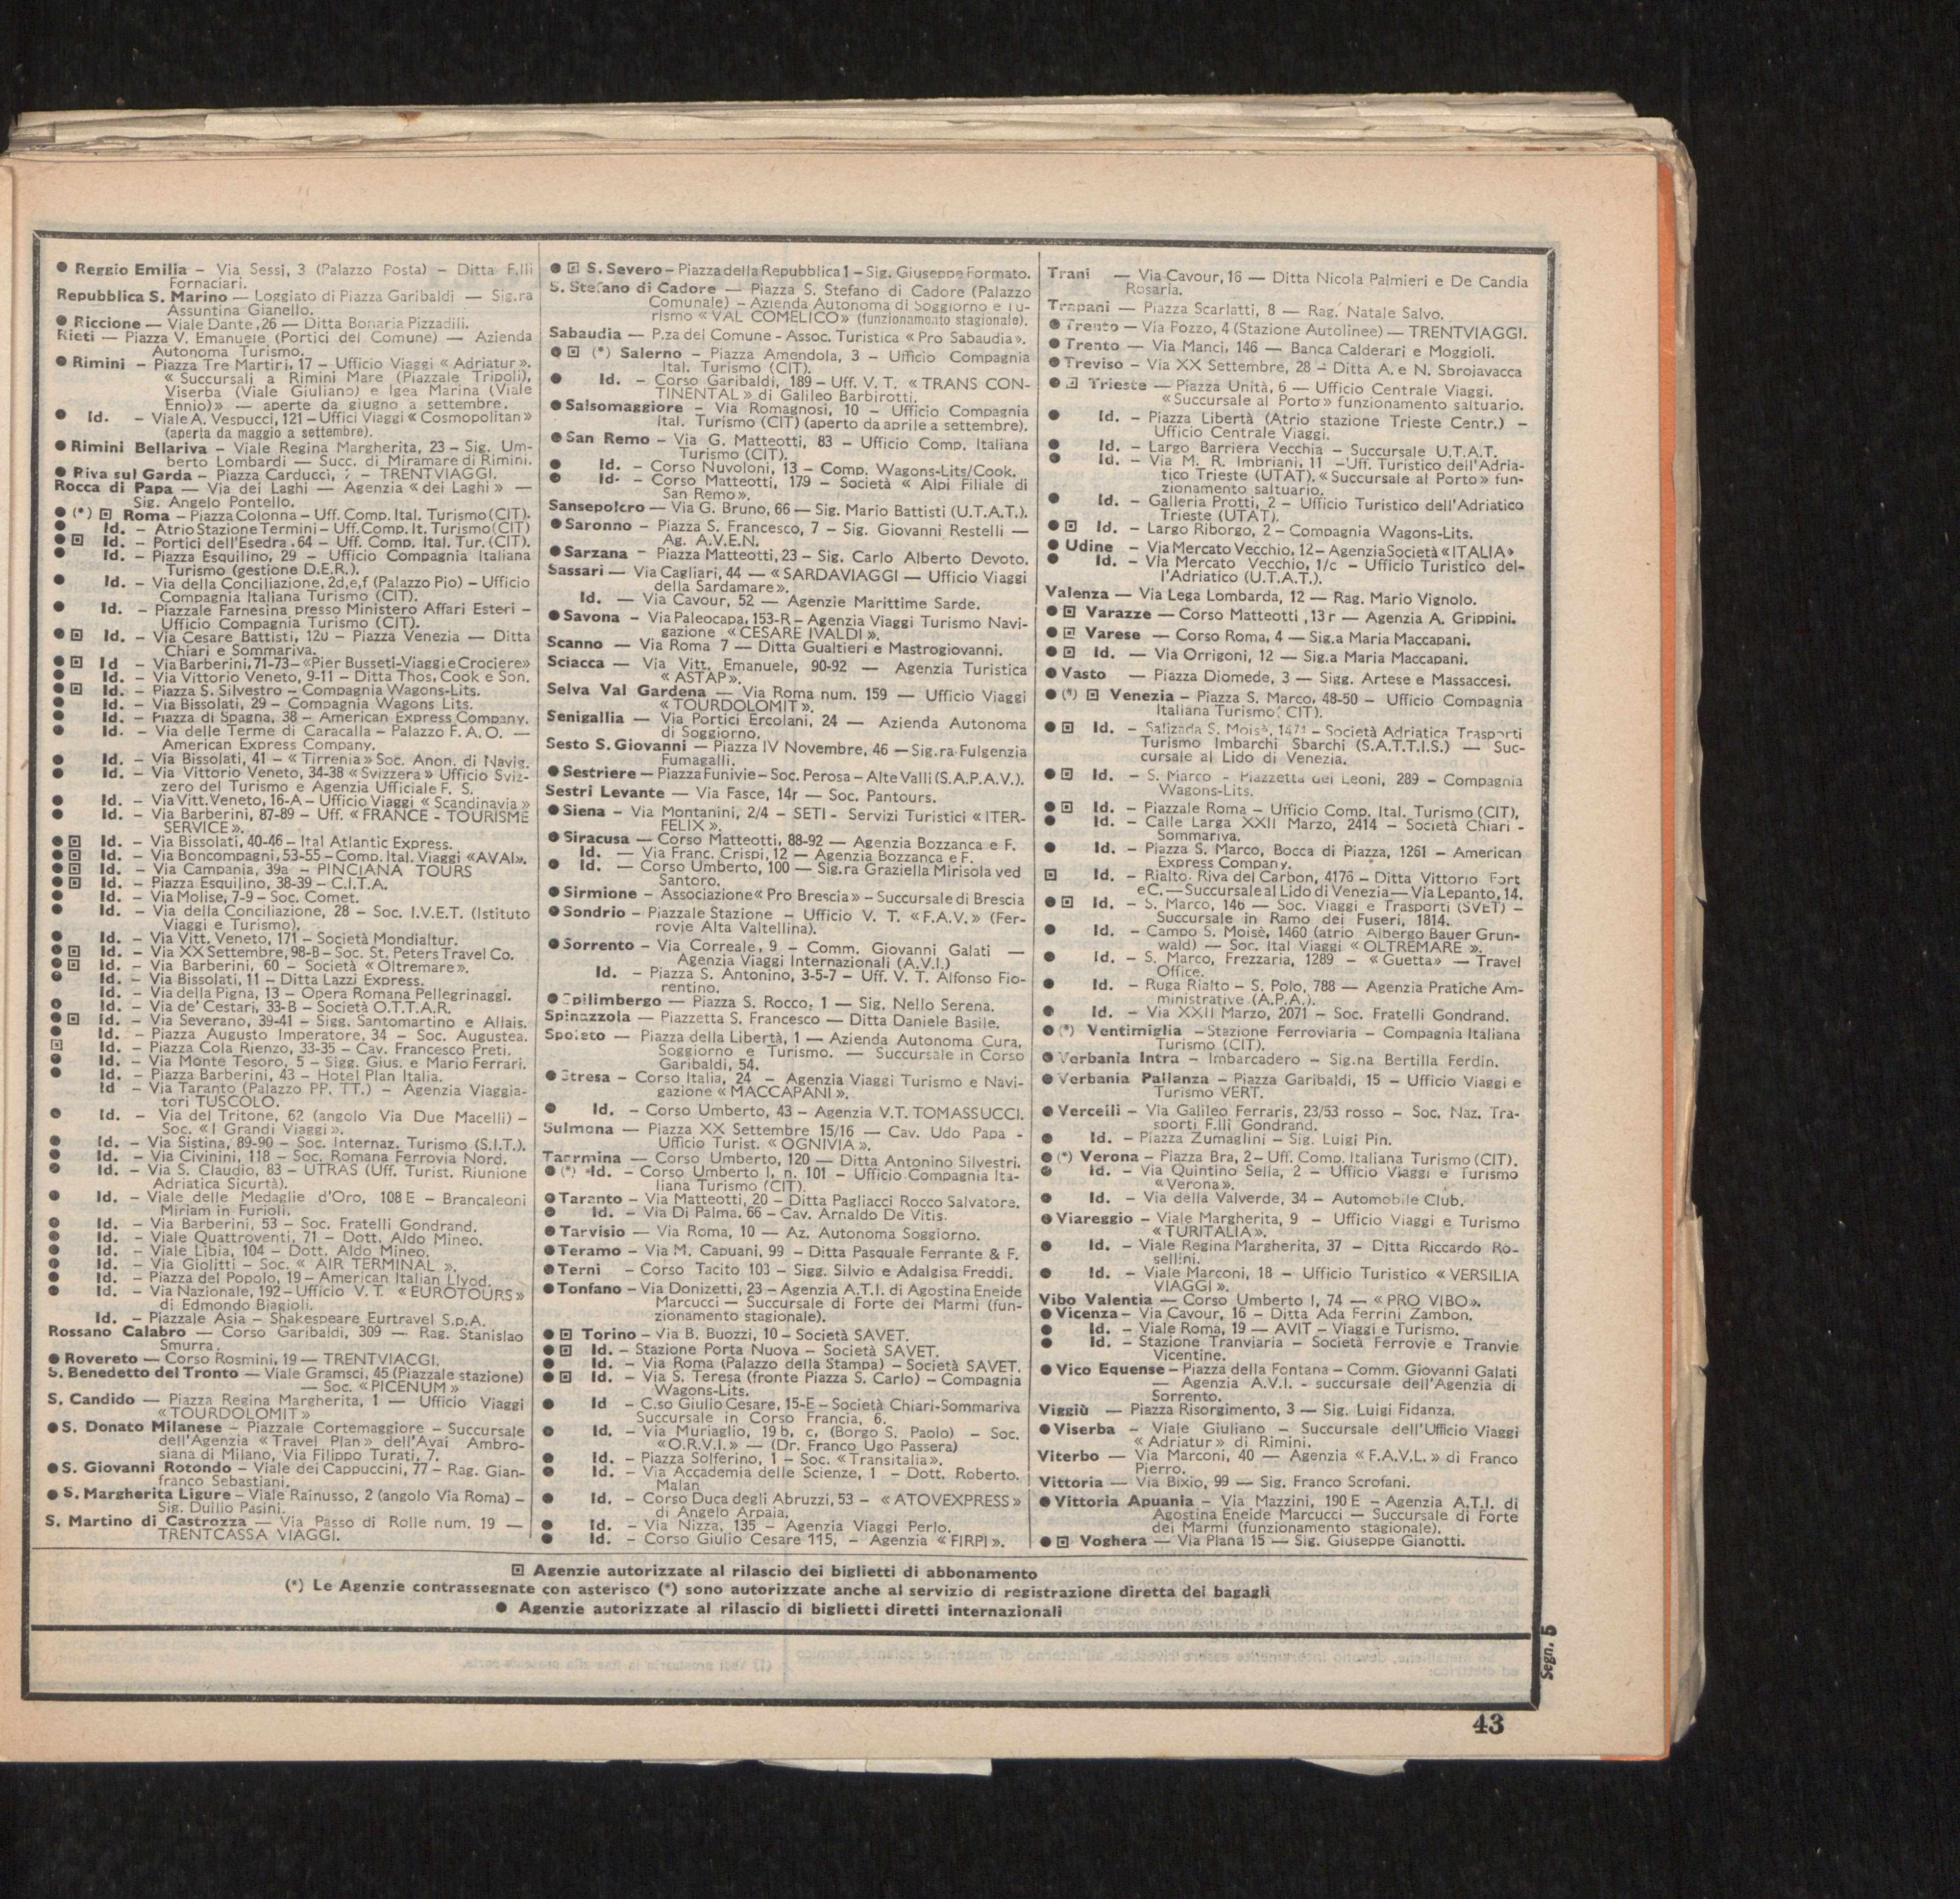 ● Reggio Emilia – Via Sessi, 3 (Palazzo Posta) – Ditta F.lli
Fornaciari.
Repubblica S. Marino — Loggiato di Piazza Garibaldi — Sig.ra
Assuntina Gianello.
● Riccione — Viale Dante,26 — Ditta Bonaria Pizzadili.
Rieti — Piazza V. Emanuele (Portici del Comune) — Azienda
Autonoma Turismo.
● Rimini – Piazza Tre Martiri, 17 – Ufficio Viaggi « Adriatur ».
« Succursali a Rimini Mare (Piazzale Tripoli),
Viserba (Viale Giuliano) e Igea Marina (Viale
Ennio)» — aperte da giugno a settembre.
● Id. – Viale A. Vespucci, 121 – Uffici Viaggi « Cosmopolitan »
(aperta da maggio a settembre).
● Rimini Bellariva – Viale Regina Margherita, 23 – Sig. Um-
berto Lombardi — Succ. di Miramare di Rimini.
● Riva sul Garda – Piazza Carducci, – TRENTVIAGGI.
Rocca di Papa — Via dei Laghi — Agenzia « dei Laghi » —
Sig. Angelo Pontello.
● (*) ⊡ Roma – Piazza Colonna – Uff. Comp. Ital. Turismo (CIT).
● Id. – Atrio Stazione Termini – Uff. Comp. It. Turismo (CIT)
● ⊡ Id. – Portici dell'Esedra .64 – Uff. Comp. Ital. Tur. (CIT).
● Id. – Piazza Esquilino, 29 – Ufficio Compagnia Italiana
Turismo (gestione D.E.R.).
● Id. – Via della Conciliazione, 2d,e,f (Palazzo Pio) – Ufficio
Compagnia Italiana Turismo (CIT).
● Id. – Piazzale Farnesina presso Ministero Affari Esteri –
Ufficio Compagnia Turismo (CIT).
● ⊡ Id. – Via Cesare Battisti, 120 – Piazza Venezia — Ditta
Chiari e Sommariva.
● ⊡ Id – Via Barberini, 71-73 – «Pier Busseti-Viaggi e Crociere»
● Id. – Via Vittorio Veneto, 9-11 – Ditta Thos, Cook e Son.
● ⊡ Id. – Piazza S. Silvestro – Compagnia Wagons-Lits.
● Id. – Via Bissolati, 29 – Compagnia Wagons Lits.
● Id. – Piazza di Spagna, 38 – American Express Company.
● Id. – Via delle Terme di Caracalla – Palazzo F. A. O. —
American Express Company.
● Id. – Via Bissolati, 41 – « Tirrenia » Soc. Anon. di Navig.
● Id. – Via Vittorio Veneto, 34-38 « Svizzera » Ufficio Sviz-
zero del Turismo e Agenzia Ufficiale F. S.
● Id. – Via Vitt. Veneto, 16-A – Ufficio Viaggi « Scandinavia »
● Id. – Via Barberini, 87-89 – Uff. « FRANCE - TOURISME
SERVICE ».
● ⊡ Id. – Via Bissolati, 40-46 – Ital Atlantic Express.
● ⊡ Id. – Via Boncompagni, 53-55 – Comp. Ital. Viaggi «AVAI».
● ⊡ Id. – Via Campania, 39a – PINCIANA TOURS
● ⊡ Id. – Piazza Esquilino, 38-39 – C.I.T.A.
● Id. – Via Molise, 7-9 – Soc. Comet.
● Id. – Via della Conciliazione, 28 – Soc. I.V.E.T. (Istituto
Viaggi e Turismo).
● Id. – Via Vitt. Veneto, 171 – Società Mondialtur.
● ⊡ Id. – Via XX Settembre, 98-B – Soc. St. Peters Travel Co.
● ⊡ Id. – Via Barberini, 60 – Società « Oltremare ».
● Id. – Via Bissolati, 11 – Ditta Lazzi Express.
Id. – Via della Pigna, 13 – Opera Romana Pellegrinaggi.
● Id. – Via de' Cestari, 33-B – Società O.T.T.A.R.
● ⊡ Id. – Via Severano, 39-41 – Sigg. Santomartino e Allais.
● Id. – Piazza Augusto Imperatore, 34 – Soc. Augustea.
⊡ Id. – Piazza Cola Rienzo, 33-35 – Cav. Francesco Preti.
● Id. – Via Monte Tesoro, 5 – Sigg. Gius. e Mario Ferrari.
● Id. – Piazza Barberini, 43 – Hotel Plan Italia.
Id – Via Taranto (Palazzo PP. TT.) – Agenzia Viaggia-
tori TUSCOLO.
● Id. – Via del Tritone, 62 (angolo Via Due Macelli) –
Soc. « I Grandi Viaggi ».
● Id. – Via Sistina, 89-90 – Soc. Internaz. Turismo (S.I.T.).
● Id. – Via Civinini, 118 – Soc. Romana Ferrovia Nord.
● Id. – Via S. Claudio, 83 – UTRAS (Uff. Turist. Riunione
Adriatica Sicurtà).
● Id. – Viale delle Medaglie d'Oro, 108 E – Brancaleoni
Miriam in Furioli.
● Id. – Via Barberini, 53 – Soc. Fratelli Gondrand.
● Id. – Viale Quattroventi, 71 – Dott. Aldo Mineo.
● Id. – Viale Libia, 104 – Dott. Aldo Mineo.
● Id. – Via Giolitti – Soc. « AIR TERMINAL ».
● Id. – Piazza del Popolo, 19 – American Italian Llyod.
● Id. – Via Nazionale, 192 – Ufficio V. T. « EUROTOURS »
di Edmondo Biagioli.
Id. – Piazzale Asia – Shakespeare Eurtravel S.p.A.
Rossano Calabro — Corso Garibaldi, 309 — Rag. Stanislao
Smurra.
● Rovereto — Corso Rosmini, 19 — TRENTVIACGI.
S. Benedetto del Tronto — Viale Gramsci, 45 (Piazzale stazione)
— Soc. «PICENUM»
S. Candido — Piazza Regina Margherita, 1 — Ufficio Viaggi
«TOURDOLOMIT»
● S. Donato Milanese – Piazzale Cortemaggiore – Succursale
dell'Agenzia « Travel Plan » dell'Avai Ambro-
siana di Milano, Via Filippo Turati, 7.
● S. Giovanni Rotondo – Viale dei Cappuccini, 77 – Rag. Gian-
franco Sebastiani.
● S. Margherita Ligure – Viale Rainusso, 2 (angolo Via Roma) –
Sig. Duilio Pasini.
S. Martino di Castrozza — Via Passo di Rolle num. 19 —
TRENTCASSA VIAGGI.
● ⊡ S. Severo – Piazza della Repubblica 1 – Sig. Giuseppe Formato.
S. Stefano di Cadore — Piazza S. Stefano di Cadore (Palazzo
Comunale) – Azienda Autonoma di Soggiorno e Tu-
rismo « VAL COMELICO » (funzionamento stagionale).
Sabaudia — P.za del Comune - Assoc. Turistica « Pro Sabaudia ».
● ⊡ (*) Salerno – Piazza Amendola, 3 – Ufficio Compagnia
Ital. Turismo (CIT).
● Id. – Corso Garibaldi, 189 – Uff. V. T. « TRANS CON-
TINENTAL » di Galileo Barbirotti.
● Salsomaggiore – Via Romagnosi, 10 – Ufficio Compagnia
Ital. Turismo (CIT) (aperto da aprile a settembre).
● San Remo – Via G. Matteotti, 83 – Ufficio Comp. Italiana
Turismo (CIT).
● Id. – Corso Nuvoloni, 13 – Comp. Wagons-Lits/Cook.
● Id. – Corso Matteotti, 179 – Società « Alpi Filiale di
San Remo ».
Sansepolcro — Via G. Bruno, 66 — Sig. Mario Battisti (U.T.A.T.).
● Saronno – Piazza S. Francesco, 7 – Sig. Giovanni Restelli —
Ag. A.V.E.N.
● Sarzana – Piazza Matteotti, 23 – Sig. Carlo Alberto Devoto.
Sassari — Via Cagliari, 44 — « SARDAVIAGGI — Ufficio Viaggi
della Sardamare ».
Id. — Via Cavour, 52 — Agenzie Marittime Sarde.
● Savona – Via Paleocapa, 153-R – Agenzia Viaggi Turismo Navi-
gazione « CESARE IVALDI ».
Scanno — Via Roma 7 — Ditta Gualtieri e Mastrogiovanni.
Sciacca — Via Vitt. Emanuele, 90-92 — Agenzia Turistica
« ASTAP».
Selva Val Gardena — Via Roma num. 159 — Ufficio Viaggi
« TOURDOLOMIT ».
Senigallia — Via Portici Ercolani, 24 — Azienda Autonoma
di Soggiorno.
Sesto S. Giovanni — Piazza IV Novembre, 46 — Sig.ra Fulgenzia
Fumagalli.
● Sestriere – Piazza Funivie – Soc. Perosa – Alte Valli (S.A.P.A.V.).
Sestri Levante — Via Fasce, 14r — Soc. Pantours.
● Siena – Via Montanini, 2/4 – SETI – Servizi Turistici « ITER-
FELIX ».
● Siracusa — Corso Matteotti, 88-92 — Agenzia Bozzanca e F.
Id. — Via Franc. Crispi, 12 — Agenzia Bozzanca e F.
● Id. — Corso Umberto, 100 — Sig.ra Graziella Mirisola ved
Santoro.
● Sirmione – Associazione « Pro Brescia » – Succursale di Brescia
● Sondrio – Piazzale Stazione – Ufficio V. T. « F.A.V. » (Fer-
rovie Alta Valtellina).
● Sorrento – Via Correale, 9 – Comm. Giovanni Galati —
Agenzia Viaggi Internazionali (A.V.I.)
Id. – Piazza S. Antonino, 3-5-7 – Uff. V. T. Alfonso Fio-
rentino.
● Spilimbergo — Piazza S. Rocco, 1 — Sig. Nello Serena.
Spinazzola — Piazzetta S. Francesco — Ditta Daniele Basile.
Spoleto — Piazza della Libertà, 1 — Azienda Autonoma Cura,
Soggiorno e Turismo. — Succursale in Corso
Garibaldi, 54.
● Stresa – Corso Italia, 24 – Agenzia Viaggi Turismo e Navi-
gazione « MACCAPANI ».
● Id. – Corso Umberto, 43 – Agenzia V.T. TOMASSUCCI.
Sulmona — Piazza XX Settembre 15/16 — Cav. Udo Papa -
Ufficio Turist. « OGNIVIA ».
Taormina — Corso Umberto, 120 — Ditta Antonino Silvestri.
● (*) Id. – Corso Umberto I, n. 101 – Ufficio Compagnia Ita-
liana Turismo (CIT).
● Taranto – Via Matteotti, 20 – Ditta Pagliacci Rocco Salvatore.
● Id. – Via Di Palma. 66 – Cav. Arnaldo De Vitis.
● Tarvisio — Via Roma, 10 — Az. Autonoma Soggiorno.
● Teramo – Via M. Capuani, 99 – Ditta Pasquale Ferrante & F.
● Terni – Corso Tacito 103 – Sigg. Silvio e Adalgisa Freddi.
● Tonfano – Via Donizetti, 23 – Agenzia A.T.I. di Agostina Eneide
Marcucci — Succursale di Forte dei Marmi (fun-
zionamento stagionale).
● ⊡ Torino – Via B. Buozzi, 10 – Società SAVET.
● ⊡ Id. – Stazione Porta Nuova – Società SAVET.
● Id. – Via Roma (Palazzo della Stampa) – Società SAVET.
● ⊡ Id. – Via S. Teresa (fronte Piazza S. Carlo) – Compagnia
Wagons-Lits.
● Id – C.so Giulio Cesare, 15-E – Società Chiari-Sommariva
Succursale in Corso Francia, 6.
● Id. – Via Muriaglio, 19 b, c, (Borgo S. Paolo) – Soc.
«O.R.V.I.» — (Dr. Franco Ugo Passera)
● Id. – Piazza Solferino, 1 – Soc. «Transitalia».
● Id. – Via Accademia delle Scienze, 1 – Dott. Roberto.
Malan
● Id. – Corso Duca degli Abruzzi, 53 – « ATOVEXPRESS »
di Angelo Arpaia.
● Id. – Via Nizza, 135 – Agenzia Viaggi Perlo.
● Id. – Corso Giulio Cesare 115, – Agenzia « FIRPI ».
Trani — Via Cavour, 16 — Ditta Nicola Palmieri e De Candia
Rosaria.
Trapani — Piazza Scarlatti, 8 — Rag. Natale Salvo.
● Trento — Via Pozzo, 4 (Stazione Autolinee) — TRENTVIAGGI.
● Trento — Via Manci, 146 — Banca Calderari e Moggioli.
● Treviso – Via XX Settembre, 28 – Ditta A. e N. Sbrojavacca
● ⊡ Trieste — Piazza Unità, 6 — Ufficio Centrale Viaggi.
«Succursale al Porto» funzionamento saltuario.
● Id. – Piazza Libertà (Atrio stazione Trieste Centr.) –
Ufficio Centrale Viaggi.
● Id. – Largo Barriera Vecchia – Succursale U.T.A.T.
● Id. – Via M. R. Imbriani, 11 –Uff. Turistico dell'Adria-
tico Trieste (UTAT). «Succursale al Porto» fun-
zionamento saltuario.
● Id. – Galleria Protti, 2 – Ufficio Turistico dell'Adriatico
Trieste (UTAT).
● ⊡ Id. – Largo Riborgo, 2 – Compagnia Wagons-Lits.
● Udine – Via Mercato Vecchio, 12 – Agenzia Società «ITALIA»
● Id. – Via Mercato Vecchio, 1/c – Ufficio Turistico del-
l'Adriatico (U.T.A.T.).
Valenza — Via Lega Lombarda, 12 — Rag. Mario Vignolo.
● ⊡ Varazze — Corso Matteotti ,13 r — Agenzia A. Grippini.
● ⊡ Varese — Corso Roma, 4 — Sig.a Maria Maccapani.
● ⊡ Id. — Via Orrigoni, 12 — Sig.a Maria Maccapani.
● Vasto — Piazza Diomede, 3 — Sigg. Artese e Massaccesi.
● (*) ⊡ Venezia – Piazza S. Marco, 48-50 – Ufficio Compagnia
Italiana Turismo( CIT).
● ⊡ Id. – Salizada S. Moisè, 1471 – Società Adriatica Trasporti
Turismo Imbarchi Sbarchi (S.A.T.T.I.S.) — Suc-
cursale al Lido di Venezia.
● ⊡ Id. – S. Marco – Piazzetta dei Leoni, 289 – Compagnia
Wagons-Lits.
● ⊡ Id. – Piazzale Roma – Ufficio Comp. Ital. Turismo (CIT),
● Id. – Calle Larga XXII Marzo, 2414 – Società Chiari -
Sommariva.
● Id. – Piazza S. Marco, Bocca di Piazza, 1261 – American
Express Company.
⊡ Id. – Rialto. Riva del Carbon, 4176 – Ditta Vittorio Fort
e C. — Succursale al Lido di Venezia — Via Lepanto, 14.
● ⊡ Id. – S. Marco, 146 — Soc. Viaggi e Trasporti (SVET) –
Succursale in Ramo dei Fuseri, 1814.
● Id. – Campo S. Moisè, 1460 (atrio Albergo Bauer Grun-
wald) — Soc. Ital Viaggi « OLTREMARE ».
● Id. – S. Marco, Frezzaria, 1289 – « Guetta» — Travel
Office.
● Id. – Ruga Rialto – S. Polo, 788 — Agenzia Pratiche Am-
ministrative (A.P.A.).
● Id. – Via XXII Marzo, 2071 – Soc. Fratelli Gondrand.
● (*) Ventimiglia – Stazione Ferroviaria – Compagnia Italiana
Turismo (CIT).
● Verbania Intra – Imbarcadero – Sig.na Bertilla Ferdin.
● Verbania Pallanza – Piazza Garibaldi, 15 – Ufficio Viaggi e
Turismo VERT.
● Vercelli – Via Galileo Ferraris, 23/53 rosso – Soc. Naz. Tra-
sporti F.lli Gondrand.
● Id. – Piazza Zumaglini – Sig. Luigi Pin.
● (*) Verona – Piazza Bra, 2 – Uff. Comp. Italiana Turismo (CIT).
● Id. – Via Quintino Sella, 2 – Ufficio Viaggi e Turismo
«Verona».
● Id. – Via della Valverde, 34 – Automobile Club.
● Viareggio – Viale Margherita, 9 – Ufficio Viaggi e Turismo
«TURITALIA».
● Id. – Viale Regina Margherita, 37 – Ditta Riccardo Ro-
sellini.
● Id. – Viale Marconi, 18 – Ufficio Turistico « VERSILIA
VIAGGI ».
Vibo Valentia — Corso Umberto I, 74 — « PRO VIBO».
● Vicenza – Via Cavour, 16 – Ditta Ada Ferrini Zambon.
● Id. – Viale Roma, 19 — AVIT – Viaggi e Turismo.
● Id. – Stazione Tranviaria – Società Ferrovie e Tranvie
Vicentine.
● Vico Equense – Piazza della Fontana – Comm. Giovanni Galati
— Agenzia A.V.I. - succursale dell'Agenzia di
Sorrento.
Viggiù — Piazza Risorgimento, 3 — Sig. Luigi Fidanza.
● Viserba – Viale Giuliano – Succursale dell'Ufficio Viaggi
« Adriatur » di Rimini.
Viterbo — Via Marconi, 40 — Agenzia « F.A.V.L. » di Franco
Pierro.
Vittoria — Via Bixio, 99 — Sig. Franco Scrofani.
● Vittoria Apuania – Via Mazzini, 190 E – Agenzia A.T.I. di
Agostina Eneide Marcucci — Succursale di Forte
dei Marmi (funzionamento stagionale).
● ⊡ Voghera — Via Plana 15 — Sig. Giuseppe Gianotti.
⊡ Agenzie autorizzate al rilascio dei biglietti di abbonamento
(*) Le Agenzie contrassegnate con asterisco (*) sono autorizzate anche al servizio di registrazione diretta dei bagagli
● Agenzie autorizzate al rilascio di biglietti diretti internazionali
Segn. 5
43